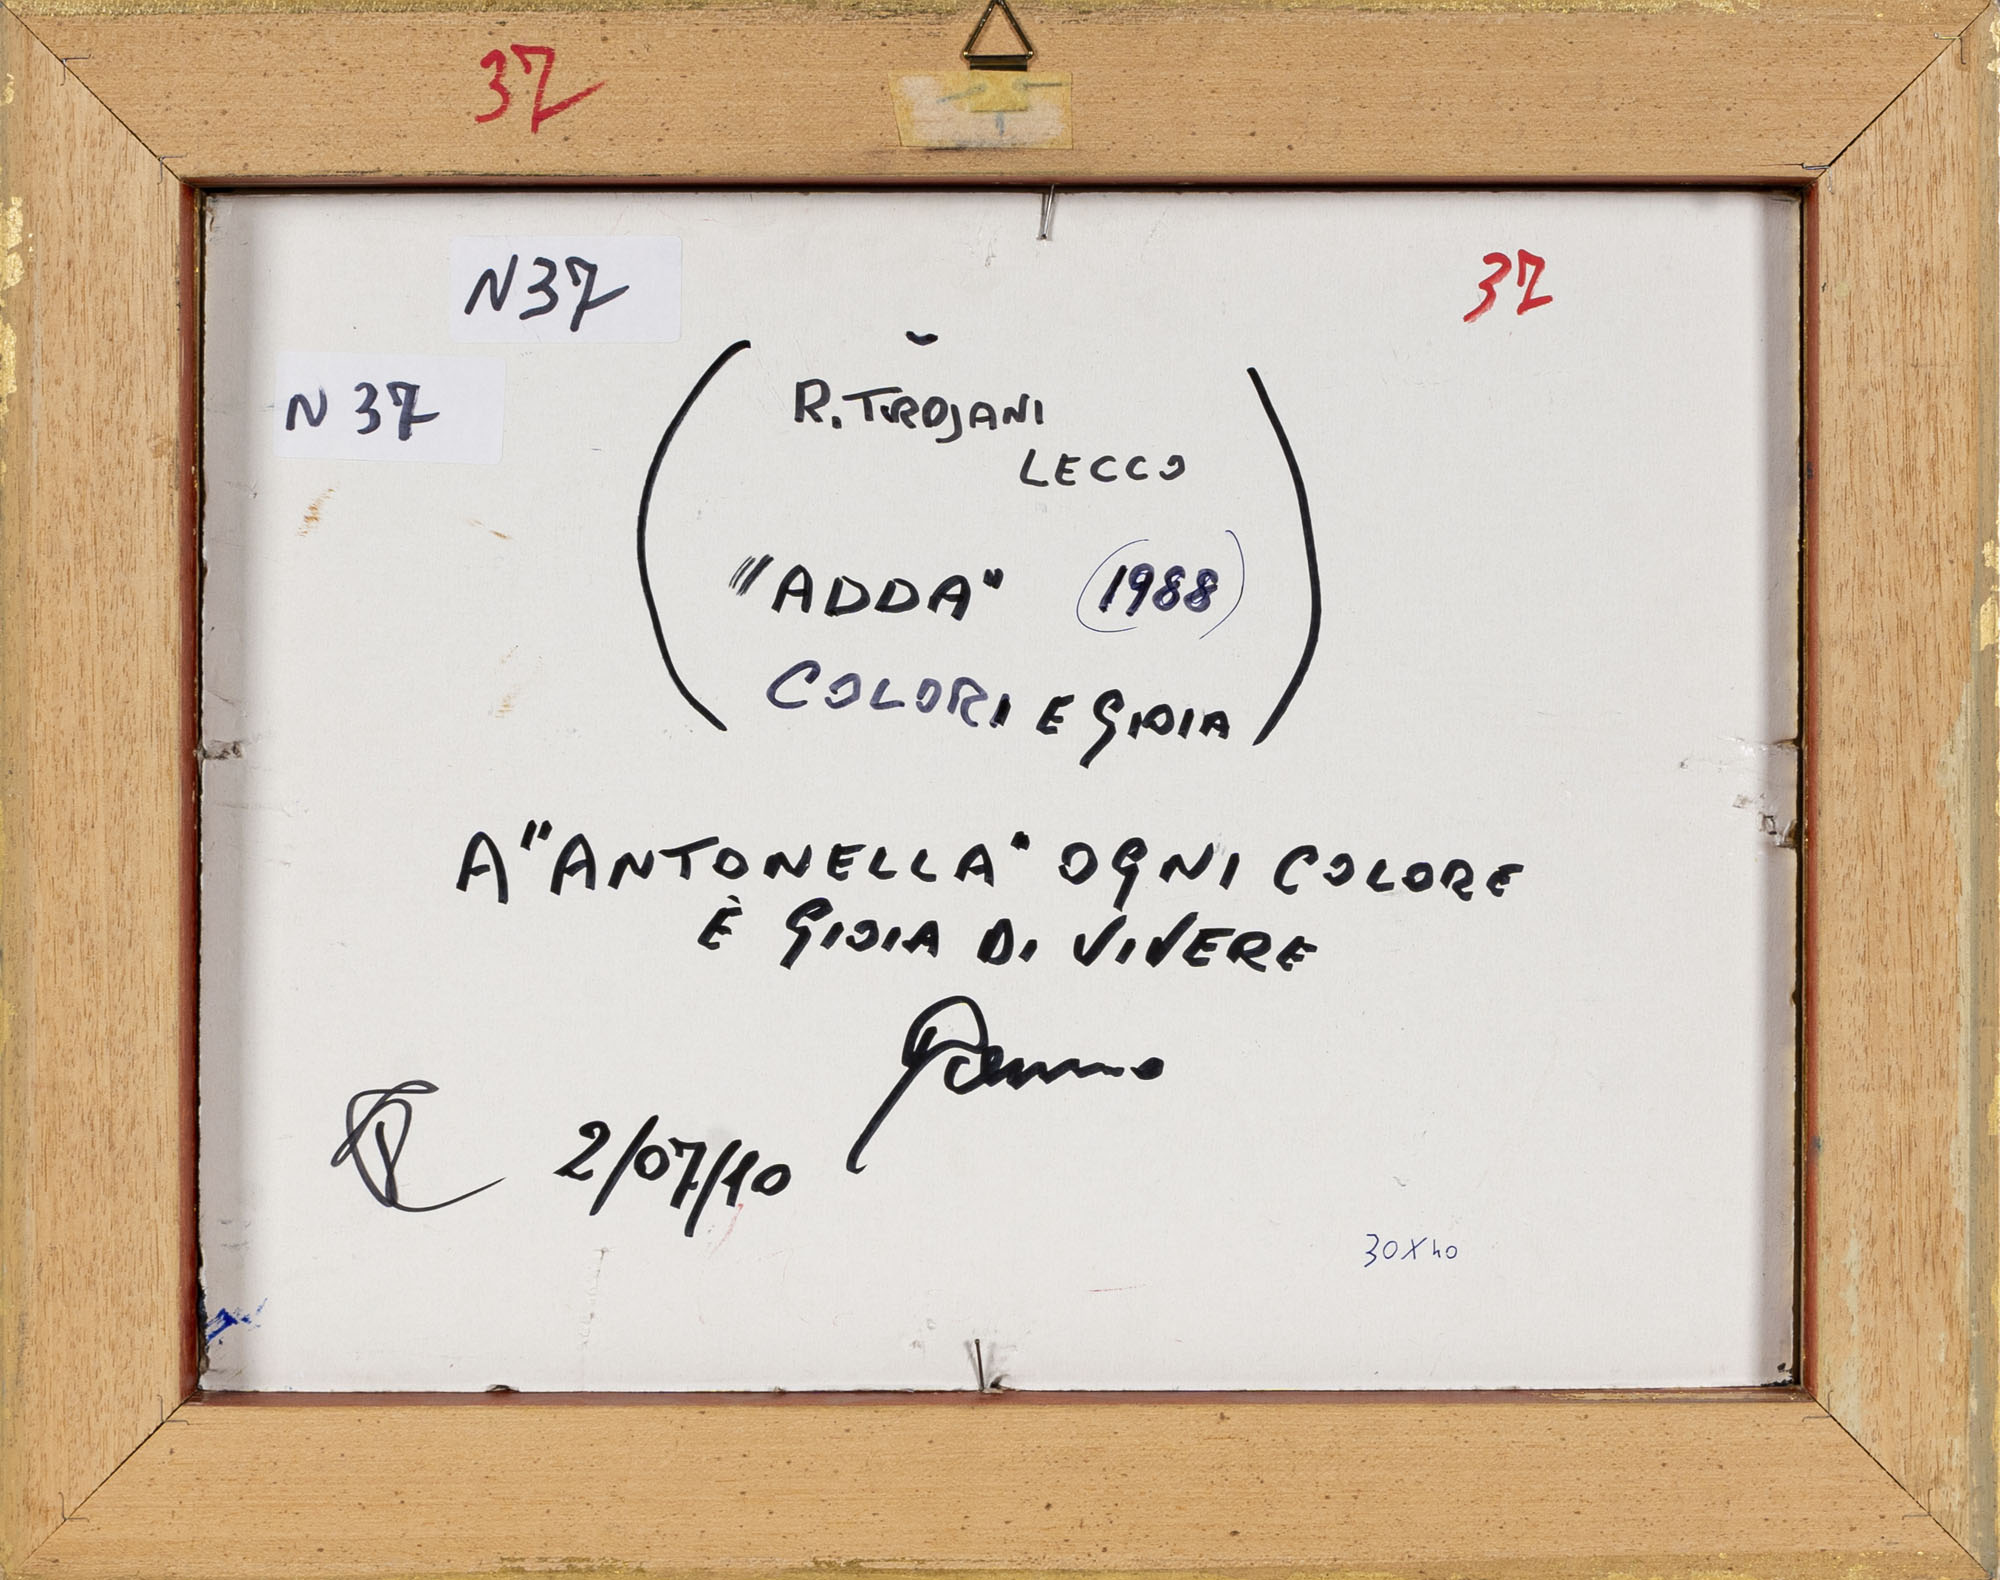 37
N 37
37
N 37
R. TROJANI
LECCO
"ADDA" (1988)
COLORI E GIOIA
A "ANTONELLA" OGNI COLORE
È GIOIA DI VIVERE
2/07/10
30X40